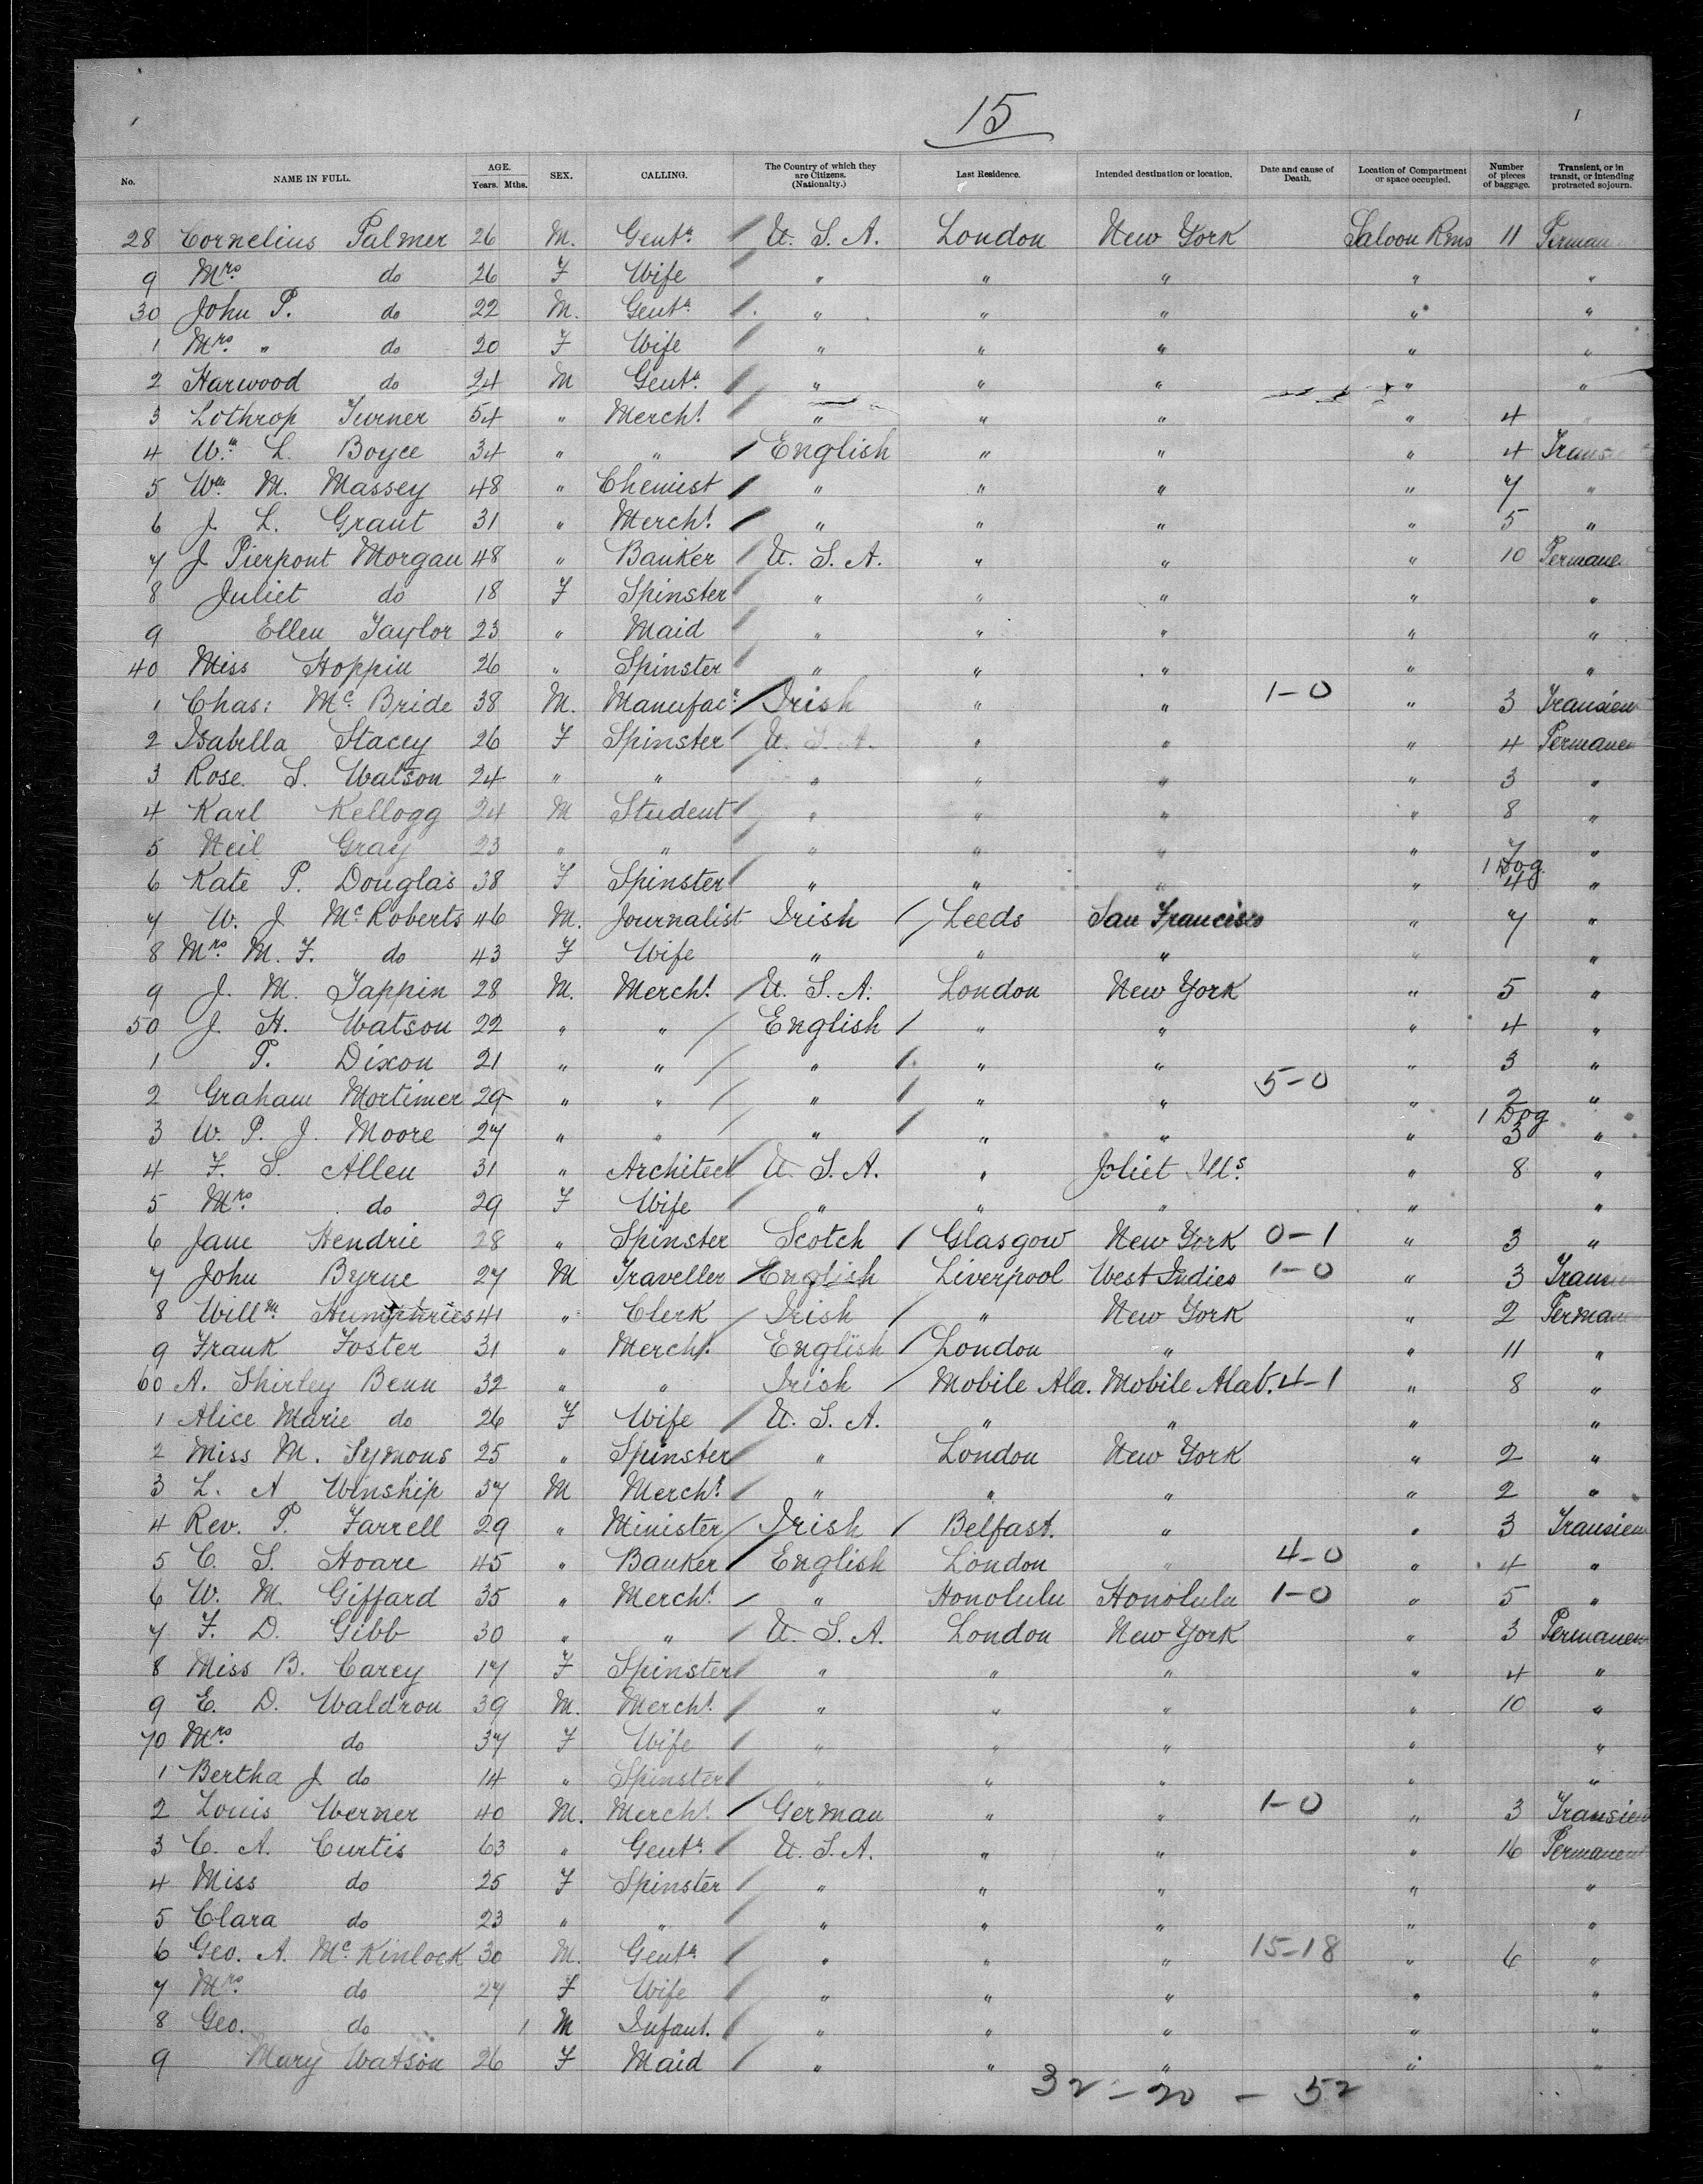 15
No. NAME IN FULL. AGE. Years. Mths. SEX. CALLING. The Country of which they are Citizens. (Nationality.) Last Residence. Intended destination or location. Date and cause of Death. Location of Compartment or space occupied. Number of pieces of baggage. Transient, or in transit, or intending protracted sojourn.
28 Cornelius Palmer 26 M. Gentn U. S. A. London New York Saloon Rms 11 Perman
9 Mrs do 26 F Wife " " " " "
30 John P. do 22 M. Gentn " " " " "
1 Mrs " do 20 F Wife " " " " "
2 Harwood do 24 M Gentn " " " " "
3 Lothrop Turner 54 " Mercht " " " " 4 "
4 Wm L. Boyce 34 " " English " " " 4 Trans
5 Wm M. Massey 48 " Chemist " " " " 7 "
6 J. L. Grant 31 " Mercht " " " " 5 "
7 J Pierpont Morgan 48 " Banker U. S. A. " " " 10 Permane
8 Juliet do 18 F Spinster " " " " "
9 Ellen Taylor 23 " Maid " " " " "
40 Miss Hoppin 26 " Spinster " " " " "
1 Chas: Mc Bride 38 M. Manufacr Irish " " 1-0 " 3 Transien
2 Isabella Stacey 26 F Spinster U. S. A. " " " 4 Permanen
3 Rose S. Watson 24 " " " " " " 3 "
4 Karl Kellogg 24 M Student " " " " 8 "
5 Neil Gray 23 " " " " " " 7 "
6 Kate P. Douglas 38 F Spinster " " " " 1 Dog 4 "
7 W. J. McRoberts 46 M. Journalist Irish Leeds San Francisco " 7 "
8 Mrs M. F. do 43 F Wife " " " " "
9 J. M. Tappin 28 M. Mercht U. S. A. London New York " 5 "
50 J. H. Watson 22 " " English " " " 4 "
1 P. Dixon 21 " " " " " " 3 "
2 Graham Mortimer 29 " " " " " 5-0 " 2 "
3 W. P. J. Moore 27 " " " " " " 1 Dog 3 "
4 F. S. Allen 31 " Architect U. S. A. " Joliet Ills. " 8 "
5 Mrs do 29 F Wife " " " " "
6 Jane Hendrie 28 " Spinster Scotch Glasgow New York 0-1 " 3 "
7 John Byrne 27 M Traveller English Liverpool West Indies 1-0 " 3 Trans
8 Willm Humphries 41 " Clerk Irish " New York " 2 Perman
9 Frank Foster 31 " Mercht. English London " " 11 "
60 A. Shirley Benn 32 " " Irish Mobile Ala. Mobile Alab. 4-1 " 8 "
1 Alice Marie do 26 F Wife U. S. A. " " " "
2 Miss M. Symons 25 " Spinster " London New York " 2 "
3 L. A Winship 37 M Mercht " " " " 2 "
4 Rev. P. Farrell 29 " Minister Irish Belfast. " " 3 Transien
5 C. S. Hoare 45 " Banker English London " 4-0 " 4 "
6 W. M. Giffard 35 " Mercht " Honolulu Honolulu 1-0 " 5 "
7 F. D. Gibb 30 " " U. S. A. London New York " 3 Permanen
8 Miss B. Carey 17 F Spinster " " " " 4 "
9 E. D. Waldron 39 M. Mercht " " " " 10 "
70 Mrs do 37 F Wife " " " " "
1 Bertha J. do 14 " Spinster " " " " "
2 Louis Werner 40 M. Mercht German " " 1-0 " 3 Transien
3 C. A. Curtis 63 " Gentn U. S. A. " " " 16 Permanent
4 Miss do 25 F Spinster " " " " "
5 Clara do 23 " " " " " " "
6 Geo. A. McKinlock 30 M. Gentn " " " 15-18 " 6 "
7 Mrs do 27 F Wife " " " " "
8 Geo. do 1 M Infant. " " " " "
9 Mary Watson 26 F Maid " " " " "
32 - 20 - 52